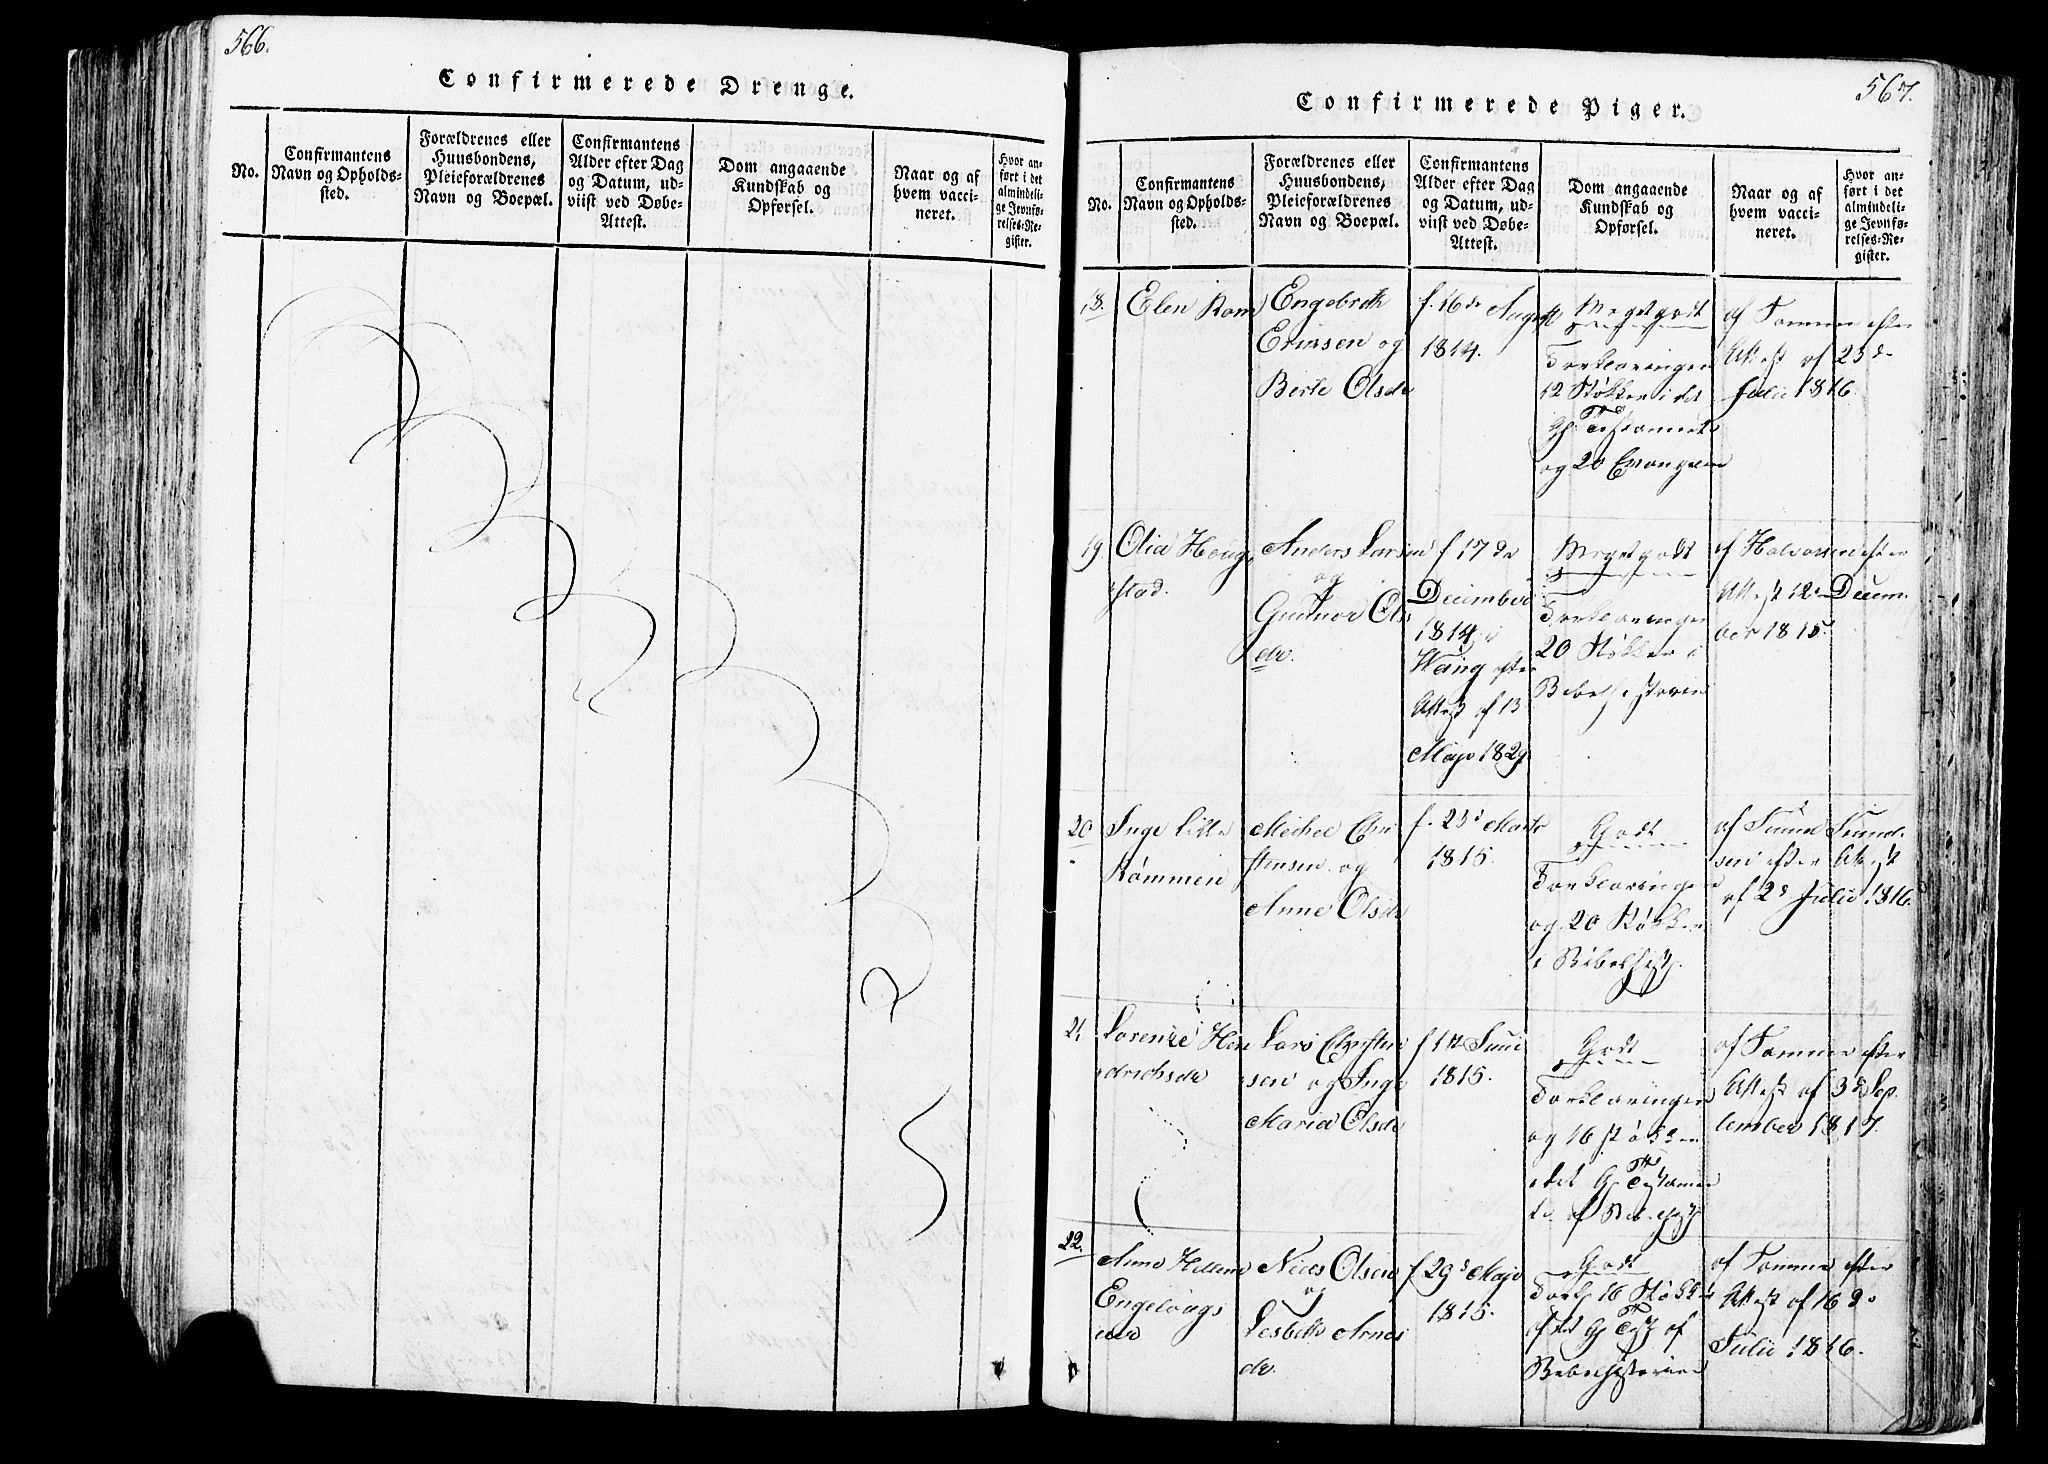 566.
Confirmerede Drenge.
No.
Confirmantens
Navn og Opholds-
sted.
Forældrenes eller
Huusbondens,
Pleieforældrenes
Navn og Boepæl.
Confirmantens
Alder efter Dag
og Datum, ud-
viist ved Døbe-
Attest.
Dom angaaende
Kundskab og
Opførsel.
Naar og af
hvem vacci-
neret.
Hvor an-
ført i det
almindeli-
ge Jevnfø-
relses-Re-
gister.
567.
Confirmerede Piger.
No.
Confirmantens
Navn og Opholds-
sted.
Forældrenes eller
Huusbondens,
Pleieforældrenes
Navn og Boepæl.
Confirmantens
Alder efter Dag
og Datum, ud-
viist ved Døbe-
Attest.
Dom angaaende
Kundskab og
Opførsel.
Naar og af
hvem vacci-
neret.
Hvor an-
ført i det
almindeli-
ge Jevnfø-
relses-Re-
gister.
18.
Elen Ram
Engebreth
Ericsen og
Berte Olsdr
f. 16de August
1814.
Meget godt
Forklaringen
12 Støkker i det
gl. Testamente
og 20 Evangelier
af Tommer efter
Attest af 23de
Julii 1816
19.
Olia Houg,
stad.
Anders Larsen
og
Gunnor Ols
dr.
f 17de
December
1814 i
Wang efter
Attest af 13
Majo 1829
Meget godt
Forklaringen
20 Støkker i
Bibelhistorien
af Halvorsen efter
Attest 12te Decem-
ber 1815.
20
Inge Lille
Rømmen
Michel Chri
stensen og
Anne Olsdr
f. 23d Marts
1815.
Godt
Forklaringen
og 20 Støkker
i Bibelhist.
af Simen Simen-
sen efter Attest
af 2d Julii 1816.
21.
Lorense Hen
drichsdr
Lars Christen
sen og Inge
Maria Olsdr
f 1st Juni
1815.
Godt
Forklaringen
og 16 Støkker
i det Gl Testamen
te af Bibelhist
af Tommer efter
Attest af 3de Sep-
tember 1817.
22.
Anne Hellene
Engelougs
eie
Niels Olsen
og
Lesbeth Arnes
dr.
f 29d Majo
1815.
Godt
Fork 16 Støkker
af det Gl Test af
Bibelhistorien
af Tommer efter
Attest af 16de
Julii 1816.